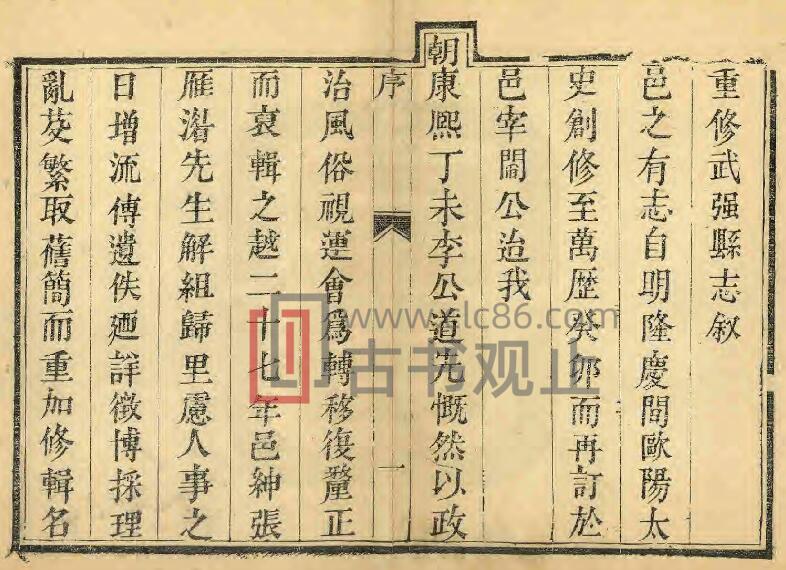 重修武强縣志叙
邑之有志自明隆慶間歐陽太
史創修至萬歷癸卯而再訂於
邑宰閻公迨我
朝康熙丁未李公道先慨然以政
序
一
治風俗視運會爲轉移復釐正
而裒輯之越二十七年邑紳張
雁湝先生解組歸里慮人事之
日增流傳遺佚廼詳徵博採理
亂芟繁取舊簡而重加修輯名
www.dlc86.com
古书观止